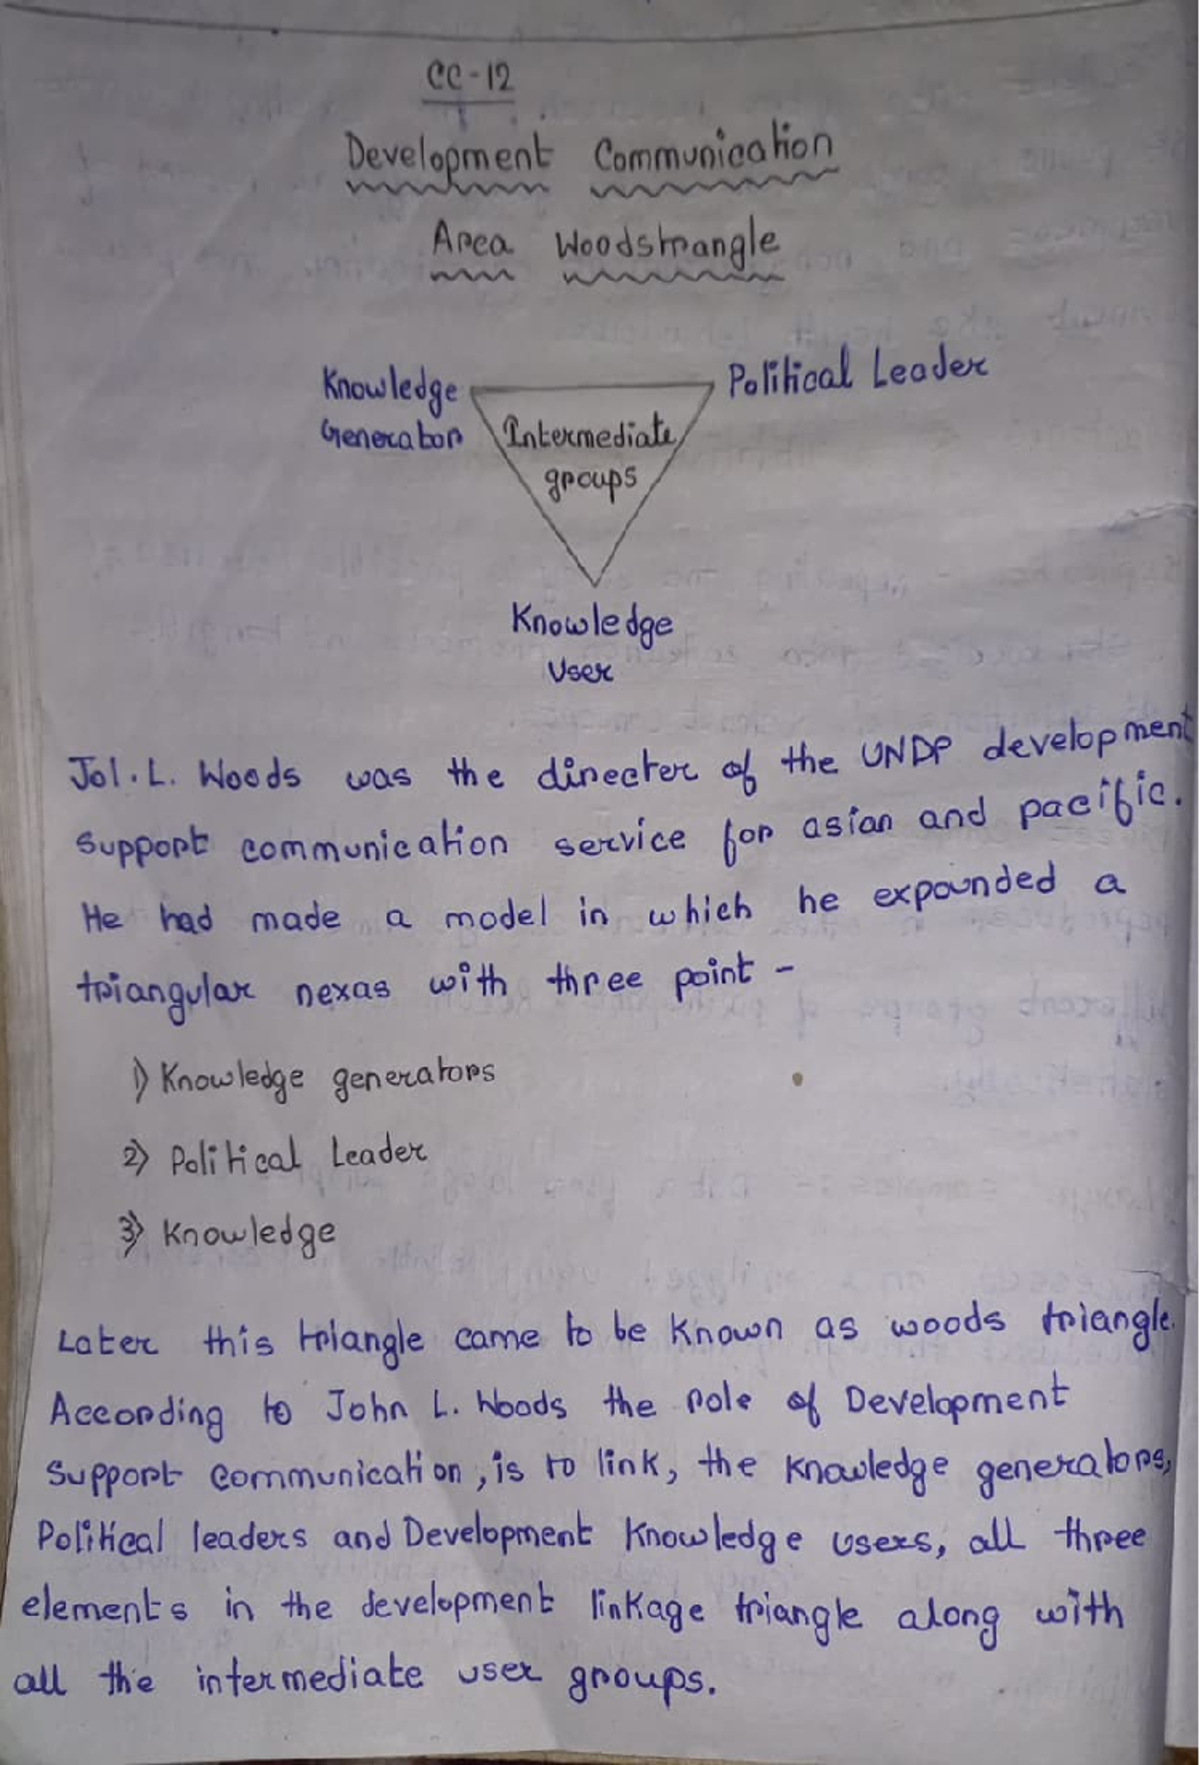 CC-12
Development Communication
Area Woodstrangle
Knowledge Political Leader
Generator Intermediate
groups
Knowledge
User
Jol.L. Woods was the directer of the UNDP development
support communication service for asian and pacific.
He had made a model in which he expounded a
triangular nexas with three point -
1) Knowledge generators
2) Political Leader
3) Knowledge
Later this triangle came to be known as woods triangle.
According to John L. Woods the role of Development
Support communication, is to link, the knowledge generators,
Political leaders and Development knowledge users, all three
elements in the development linkage triangle along with
all the intermediate user groups.